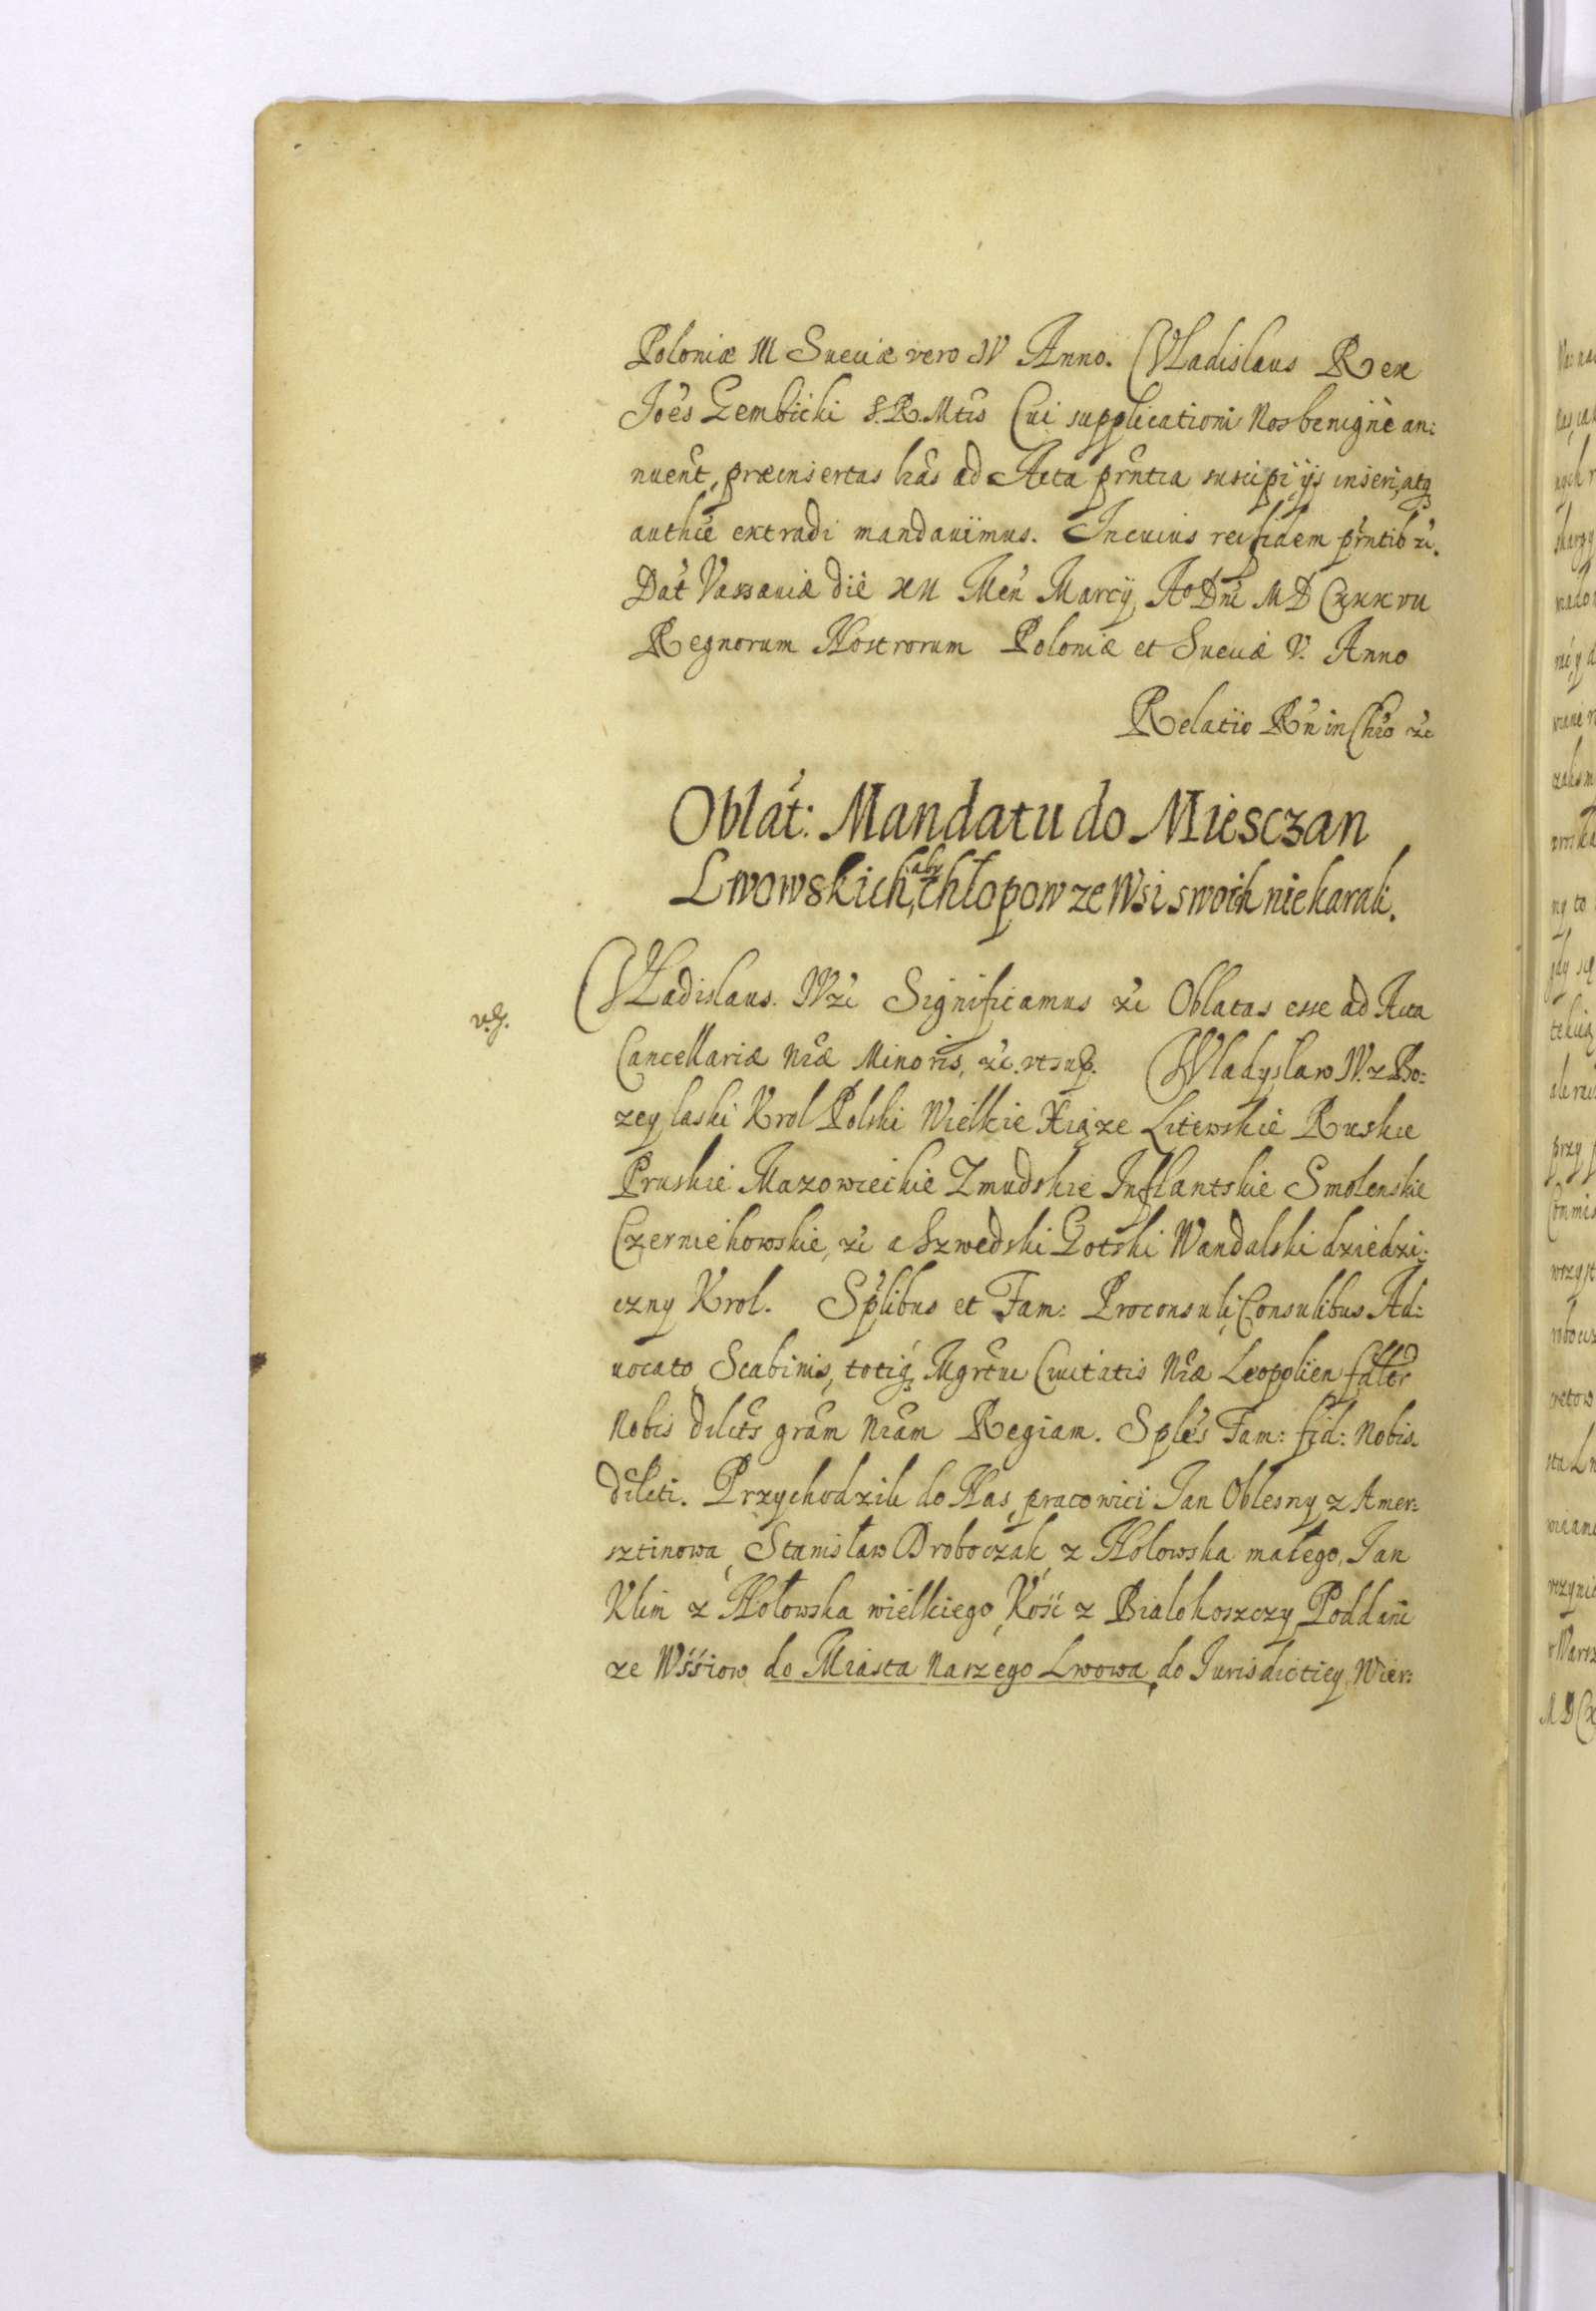 Poloniæ III Sueciæ vero IV Anno. Vladislaus Rex
Joẽs Gembicki S.R.Mtis Cui supplicationi Nos benignè an:
nuent, præinsertas lras ad Acta prntia suscipi, ijs inseri, atq
authce extradi mandauimus. In cuius rei fidem prntib zc.
Dat Varsauiæ die XII Men Marcij Ao Dni MDCXXXVII
Regnorum Nostrorum Poloniæ et Sueciæ V. Anno
Relatio Rn in Chro zc
Oblat: Mandatu do Miesczan
Lwowskich, aby chłopow ze Wsi swoich nie karali.
v.g.
Vladislaus. IV zc Significamus zc Oblatas esse ad Acta
Cancellariæ nræ Minoris, zc. vt sup. Wladyslaw IV. z Bo:
zey laski Krol Polski Wielkie Xiąze Litewskie Ruskie
Pruskie Mazowieckie Zmudskie Inflantskie Smolenskie
Czerniehowskie, zc a Szwedski Gotski Wandalski dziedzi:
czny Krol. Splibus et Fam: Proconsuli, Consulibus Ad:
uocato Scabinis, totiq Mgrtui Ciuitatis Nræ Leopolien fidltr
Nobis dilcts gram nram Regiam. Sples Fam: fid: Nobis
dilcti. Przychodzili do Nas pracowici Jan Oblesny z Amer:
sztinowa, Stanisław Droboczak z Hołowska małego, Jan
Klim z Hołowska wielkiego, Kość z Bialohoszczy, Poddani
ze Wśsiow do Miasta Naszego Lwowa, do Jurisdictiey Wier: